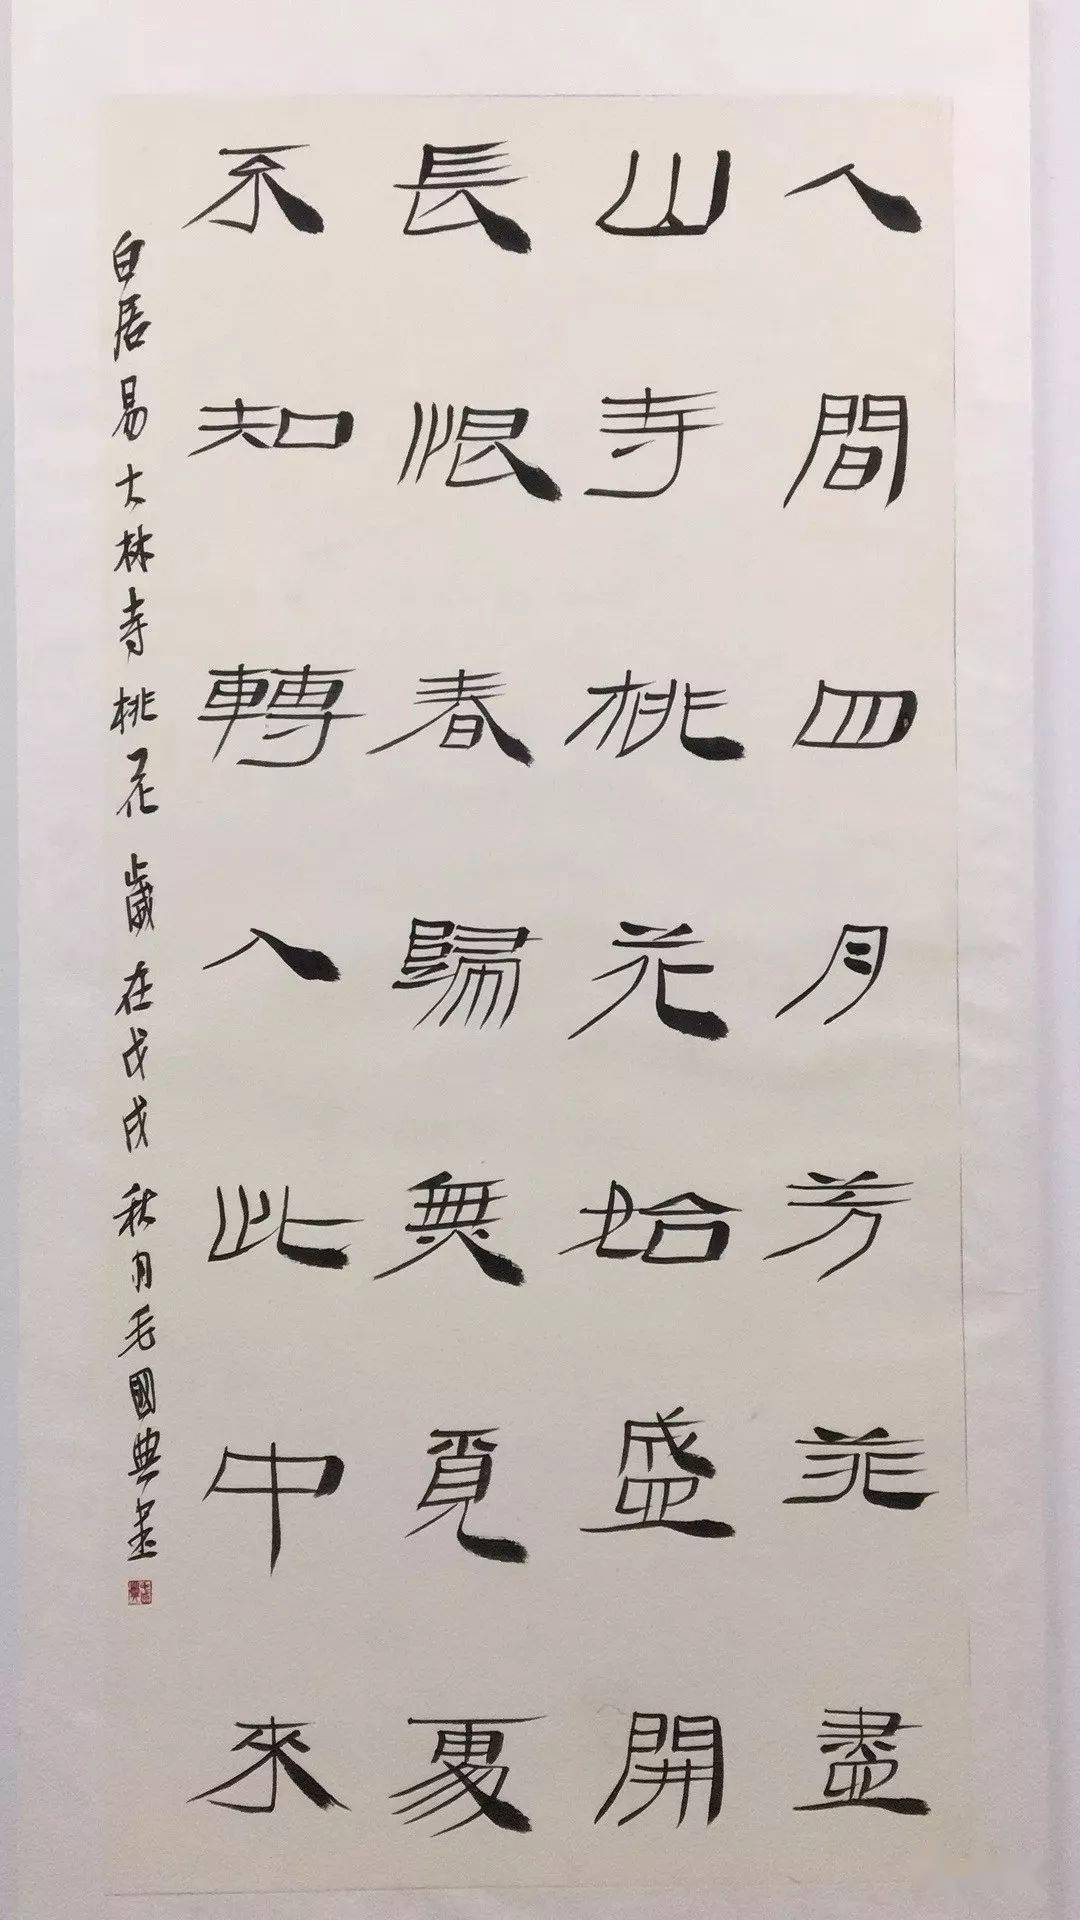 人間四月芳菲盡
山寺桃花始盛開
長恨春歸無覓處
不知轉入此中來
白居易大林寺桃花 歲在戊戌秋月毛國典書